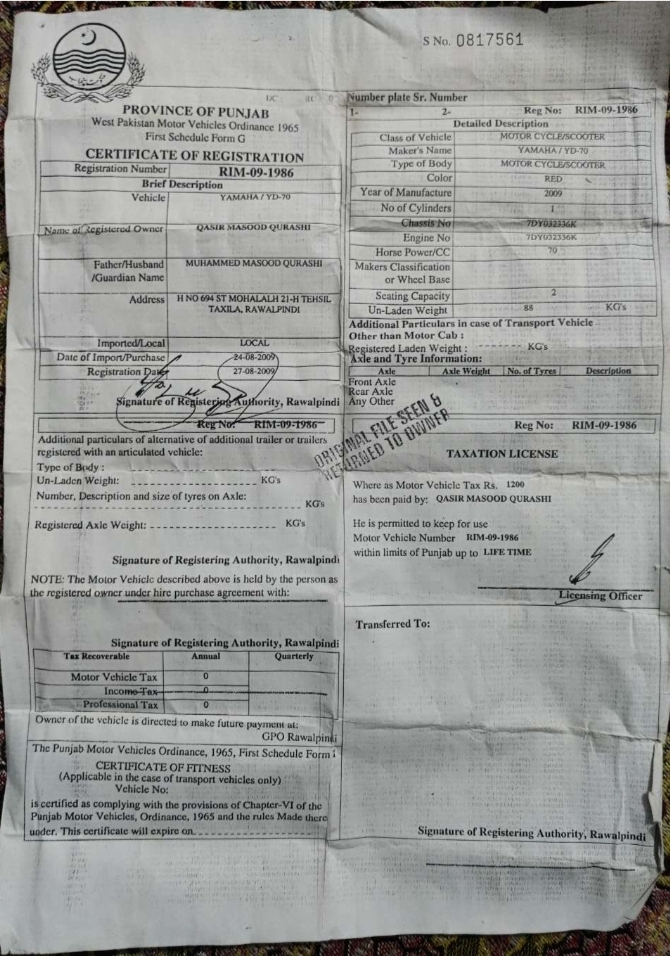 S No. 0817561
PROVINCE OF PUNJAB
West Pakistan Motor Vehicles Ordinance 1965
First Schedule Form G
CERTIFICATE OF REGISTRATION
Registration Number RIM-09-1986
Brief Description
Vehicle YAMAHA / YD-70
Name of Registered Owner QASIR MASOOD QURASHI
Father/Husband MUHAMMED MASOOD QURASHI
/Guardian Name
Address H NO 694 ST MOHALALH 21-H TEHSIL
TAXILA, RAWALPINDI
Imported/Local LOCAL
Date of Import/Purchase 24-08-2009
Registration Date 27-08-2009
Signature of Registering Authority, Rawalpindi
Reg No: RIM-09-1986
Additional particulars of alternative of additional trailer or trailers
registered with an articulated vehicle:
Type of Body :
Un-Laden Weight: KG's
Number, Description and size of tyres on Axle:
KG's
Registered Axle Weight: KG's
Signature of Registering Authority, Rawalpindi
NOTE: The Motor Vehicle described above is held by the person as
the registered owner under hire purchase agreement with:
Signature of Registering Authority, Rawalpindi
Tax Recoverable Annual Quarterly
Motor Vehicle Tax 0
Income Tax 0
Professional Tax 0
Owner of the vehicle is directed to make future payment at:
GPO Rawalpindi
The Punjab Motor Vehicles Ordinance, 1965, First Schedule Form
CERTIFICATE OF FITNESS
(Applicable in the case of transport vehicles only)
Vehicle No:
is certified as complying with the provisions of Chapter-VI of the
Punjab Motor Vehicles, Ordinance, 1965 and the rules Made there
under. This certificate will expire on.
Number plate Sr. Number
1- 2- Reg No: RIM-09-1986
Detailed Description
Class of Vehicle MOTOR CYCLE/SCOOTER
Maker's Name YAMAHA / YD-70
Type of Body MOTOR CYCLE/SCOOTER
Color RED
Year of Manufacture 2009
No of Cylinders 1
Chassis No 7DY032336K
Engine No 7DY032336K
Horse Power/CC 70
Makers Classification
or Wheel Base
Seating Capacity 2
Un-Laden Weight 88 KG's
Additional Particulars in case of Transport Vehicle
Other than Motor Cab :
Registered Laden Weight : KG's
Axle and Tyre Information:
Axle Axle Weight No. of Tyres Description
Front Axle
Rear Axle
Any Other
ORIGINAL FILE SEEN &
RETURNED TO OWNER
Reg No: RIM-09-1986
TAXATION LICENSE
Where as Motor Vehicle Tax Rs. 1200
has been paid by: QASIR MASOOD QURASHI
He is permitted to keep for use
Motor Vehicle Number RIM-09-1986
within limits of Punjab up to LIFE TIME
Licensing Officer
Transferred To:
Signature of Registering Authority, Rawalpindi